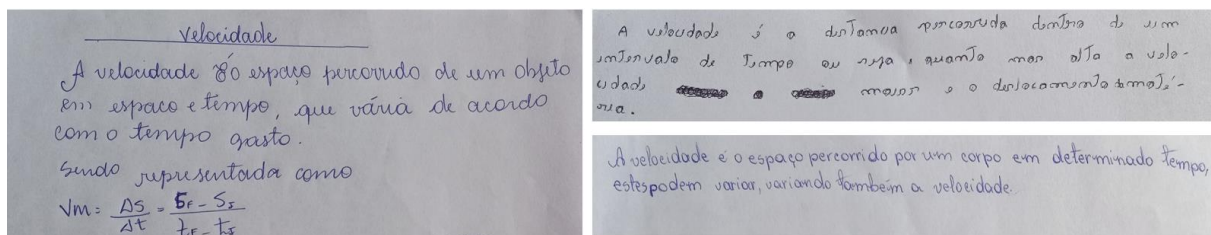 Velocidade
A velocidade é o espaço percorrido de um objeto
em espaço e tempo, que vária de acordo
com o tempo gasto.
Sendo representada como
Vm = ΔS/Δt = SF - SI / tF - tI
A velocidade é a distancia percorrida dentro de um
intervalo de tempo ou seja, quanto mais alta a velo-
cidade maior e o deslocamento da maté-
ria.
A velocidade é o espaço percorrido por um corpo em determinado tempo,
estes podem variar, variando também a velocidade.